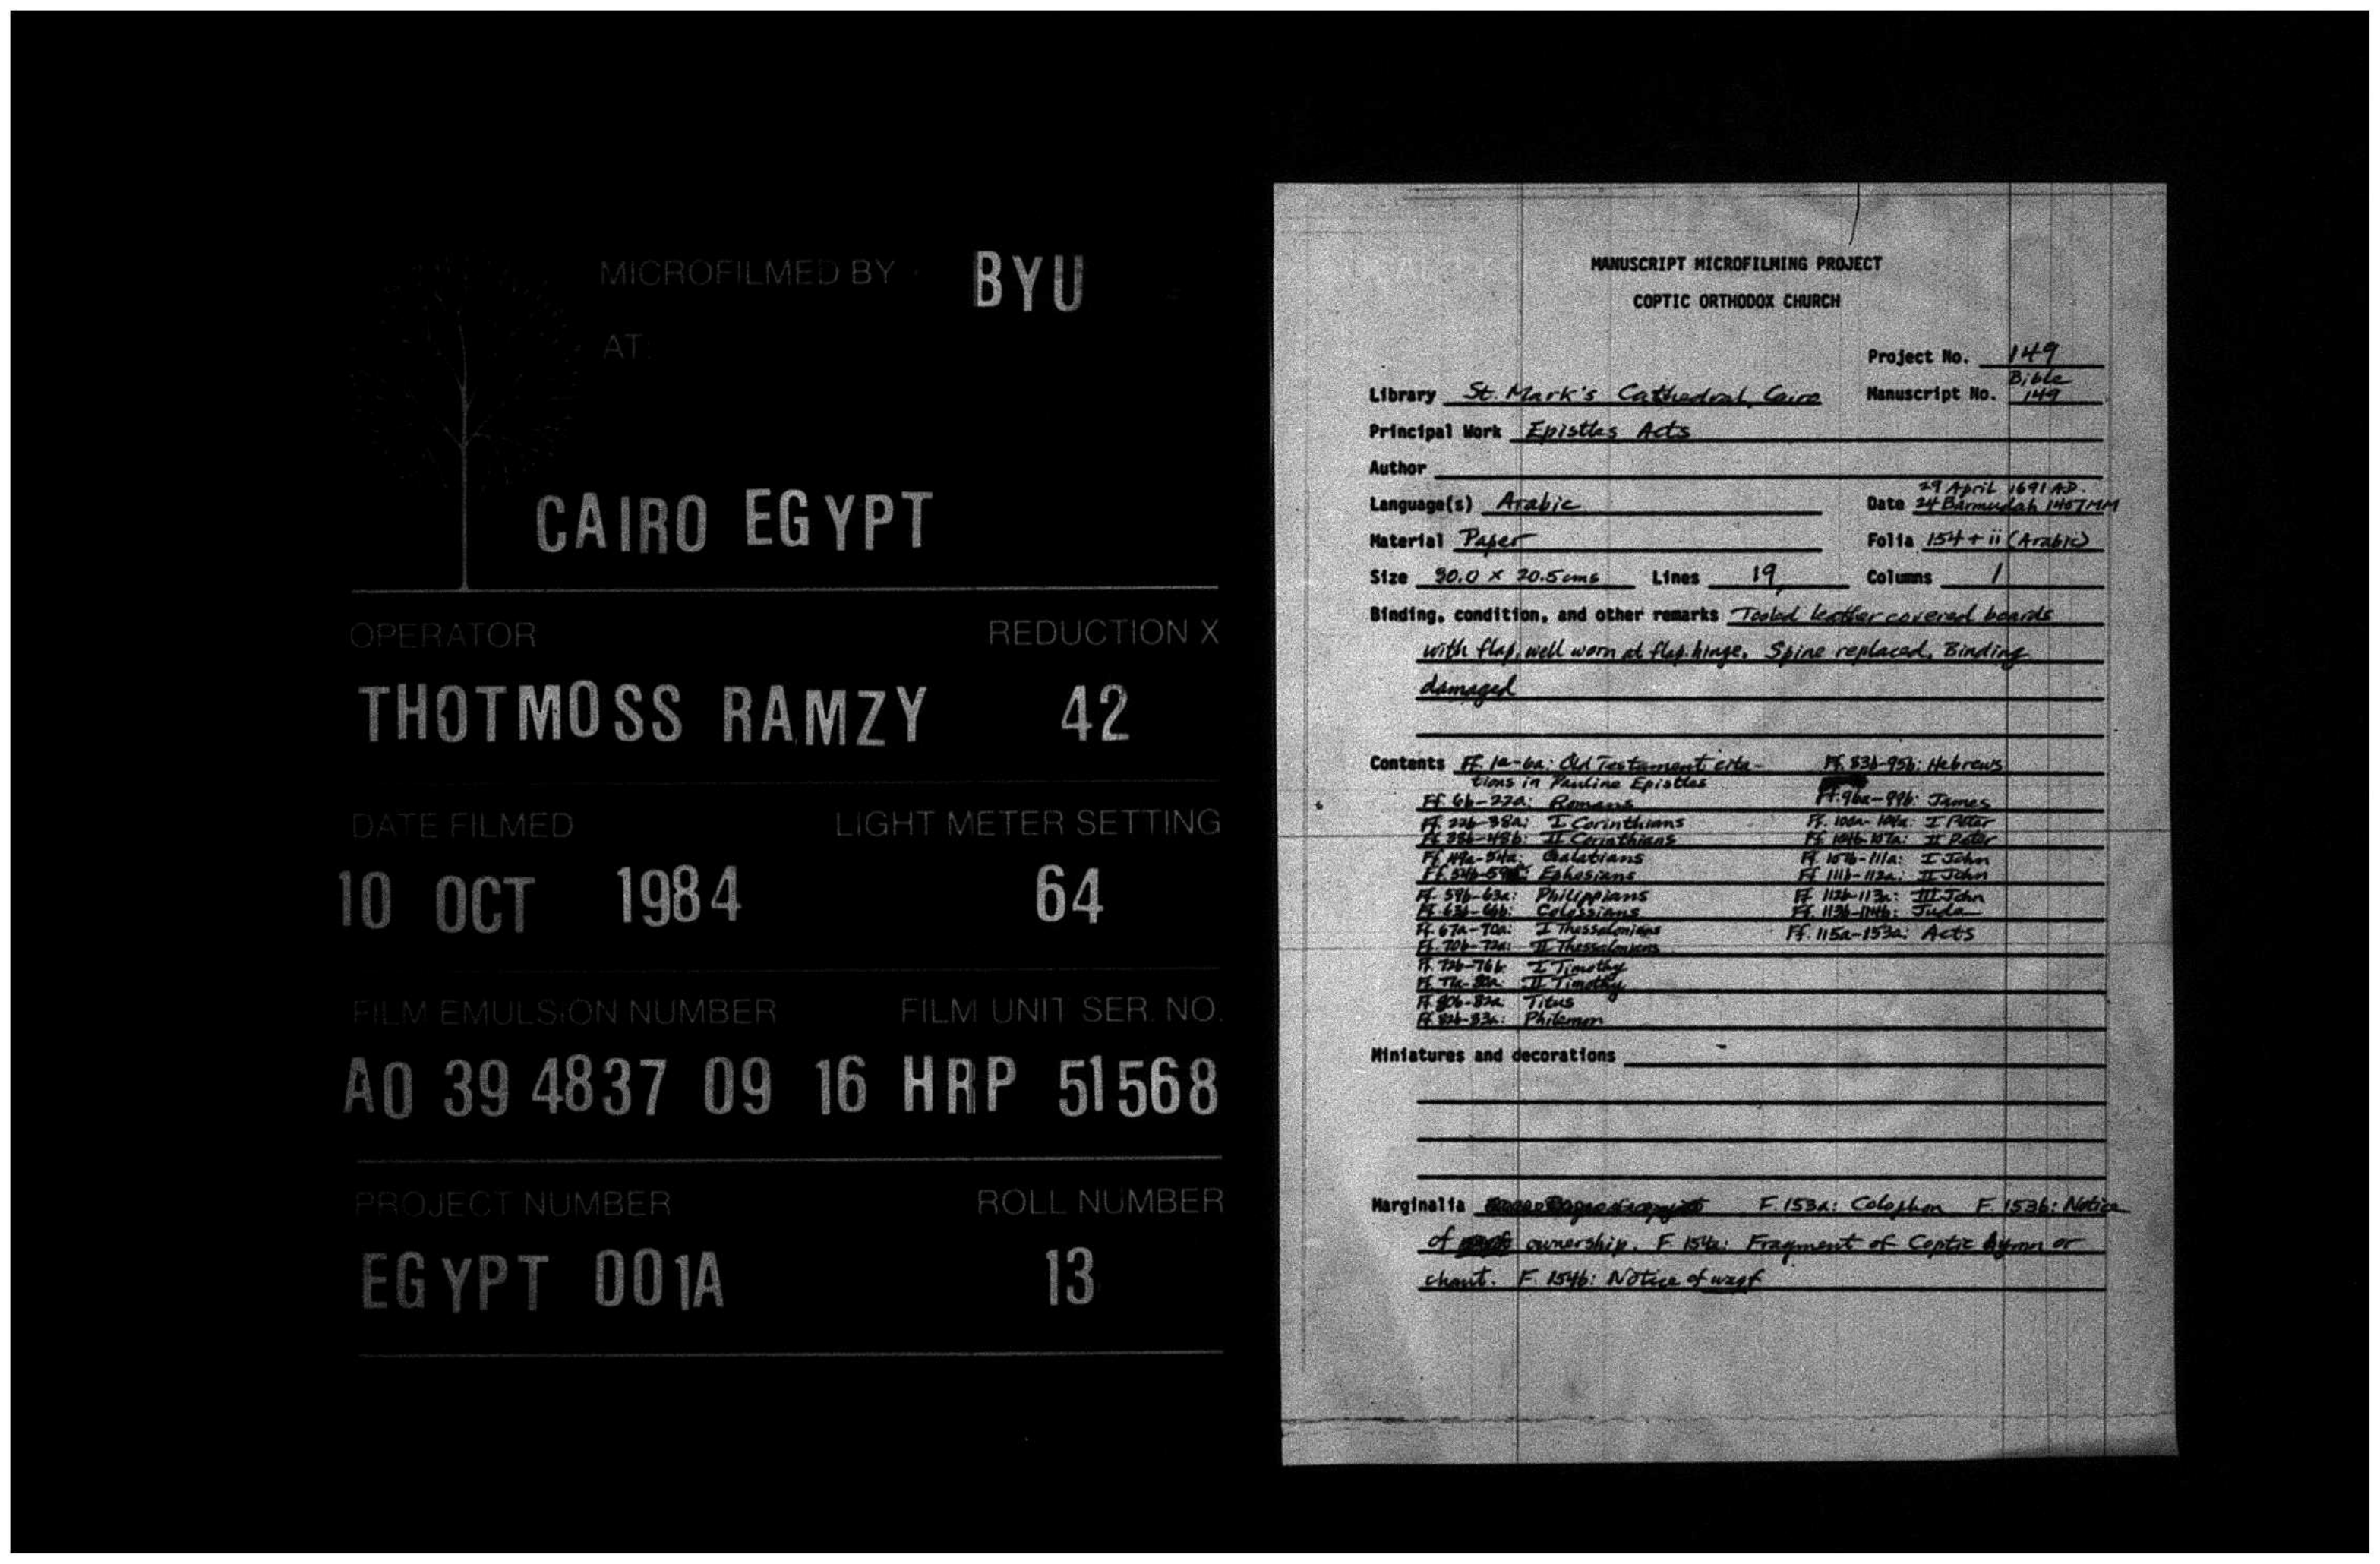 MICROFILMED BY BYU
AT:
CAIRO EGYPT
OPERATOR REDUCTION X
THOTMOSS RAMZY 42
DATE FILMED LIGHT METER SETTING
10 OCT 1984 64
FILM EMULSION NUMBER FILM UNIT SER. NO.
A0 39 4837 09 16 HRP 51568
PROJECT NUMBER ROLL NUMBER
EGYPT 001A 13
MANUSCRIPT MICROFILMING PROJECT
COPTIC ORTHODOX CHURCH
Project No. 149
Library St. Mark's Cathedral, Cairo Manuscript No. Bible 149
Principal Work Epistles Acts
Author
Language(s) Arabic Date 29 April 1691 AD. 24 Barmudah 1407 MM
Material Paper Folia 154 + ii (Arabic)
Size 30.0 x 20.5 cms Lines 19 Columns 1
Binding, condition, and other remarks Tooled leather covered boards
with flap, well worn at flap hinge. Spine replaced. Binding
damaged
Contents Ff. 1a-6a: Old Testament cita-
tions in Pauline Epistles
Ff. 6b-22a: Romans
Ff. 22b-38a: I Corinthians
Ff. 38b-48b: II Corinthians
Ff. 49a-54a: Galatians
Ff. 54b-59a: Ephesians
Ff. 59b-63a: Philippians
Ff. 63b-66b: Colossians
Ff. 67a-70a: I Thessalonians
Ff. 70b-72a: II Thessalonians
Ff. 72b-76b: I Timothy
Ff. 77a-80a: II Timothy
Ff. 80b-82a: Titus
Ff. 82b-83a: Philemon
Ff. 83b-95b: Hebrews
Ff. 96a-99b: James
Ff. 100a-104a: I Peter
Ff. 104b-107a: II Peter
Ff. 107b-111a: I John
Ff. 111b-112a: II John
Ff. 112b-113a: III John
Ff. 113b-114b: Juda
Ff. 115a-153a: Acts
Miniatures and decorations
Marginalia F. 153a: Colophon F. 153b: Notice
of ownership. F. 154a: Fragment of Coptic hymn or
chant. F. 154b: Notice of waqf